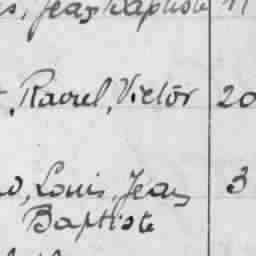 Jean Baptiste 11
, Raoul, Victor 20
, Louis, Jean 3
Baptiste